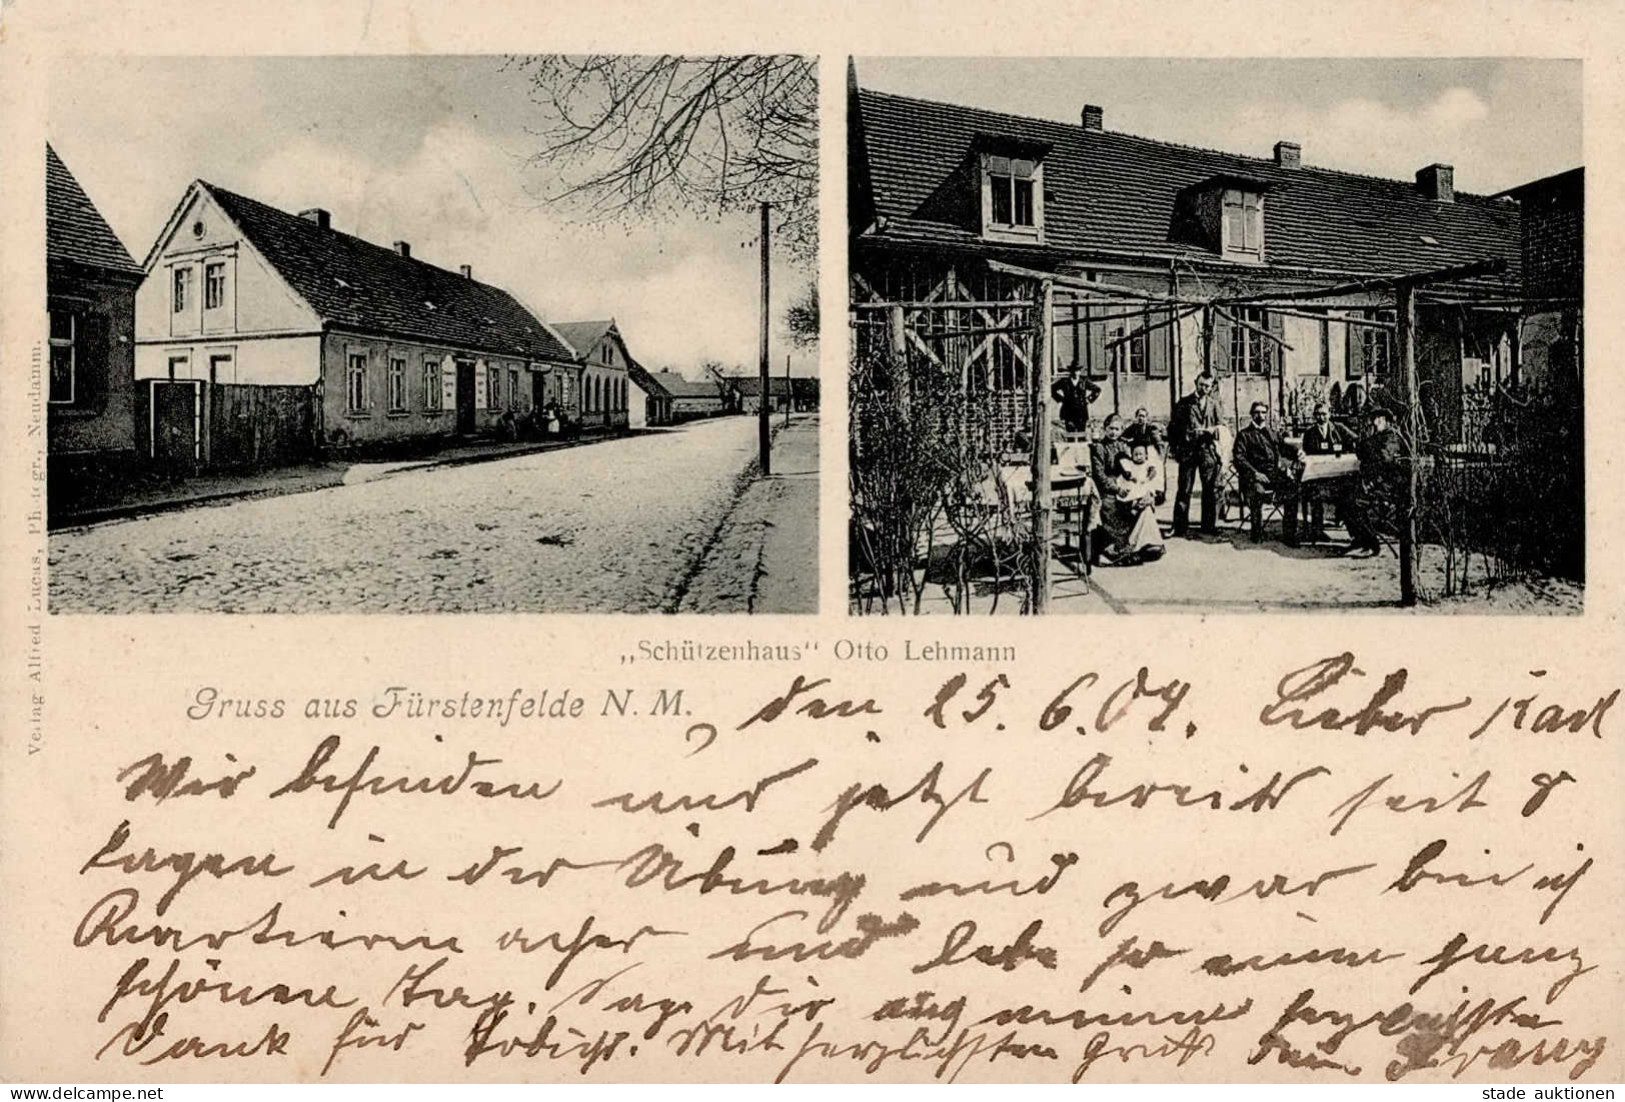 Verlag Alfred Lucas, Photogr., Neudamm.
„Schützenhaus“ Otto Lehmann
Gruss aus Fürstenfelde N. M.
den 25. 6. 04. Lieber Karl
Wir befinden uns jetzt bereits seit 8
Tagen in der Übung und zwar bin ich
Quartiermacher und lebe so einen ganz
schönen Tag. Sage Dir auch meinen
Dank für Mit herzlichsten Gruß Dein Franz
stade auktionen